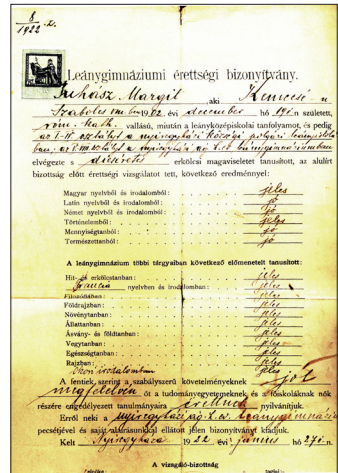 8
1922 -z.
Leánygimnáziumi érettségi bizonyítvány.
Juhász Margit, aki Kemecse n
Szabolcs m. ben 1902. évi december hó 19én született,
róm. kath. vallású, miután a leányközépiskolai tanfolyamot, és pedig
az I-IV osztályt a nyiregyházi községi polgári leányiskolá
ban, az V-VIII. osztályt a nyiregyházi ág. h. ev. leánygimnáziumban
elvégezte s dicséretes erkölcsi magaviseletet tanusitott, az alulírt
bizottság előtt érettségi vizsgálatot tett, következő eredménnyel:
Magyar nyelvből és irodalomból: jeles
Latin nyelvből és irodalomból: jó
Német nyelvből és irodalomból: jó
Történelemből: jeles
Mennyiségtanból: jó
Természettanból: jó
A leánygimnázium többi tárgyaiban következő előmenetelt tanusitott:
Hit- és erkölcstanban: jeles
Francia nyelvben és irodalomban: jeles
Filozófiában: jeles
Földrajzban: jeles
Növénytanban: jeles
Állattanban: jeles
Ásvány- és földtanban: jeles
Vegytanban: jeles
Egészségtanban: jeles
Rajzban: jeles
irodalomban jeles
A fentiek szerint a szabályszerű követelményeknek jól
megfelelvén, őt a tudományegyetemeknek és a főiskoláknak nők
részére engedélyezett tanulmányaira érettnek nyilvánitjuk.
Erről neki a nyiregyházi ág. h. ev. leánygimnázium
pecsétjével és saját aláirásunkkal ellátott jelen bizonyitványt kiadjuk.
Kelt Nyiregyháza 1922. évi június hó 27én.
A vizsgáló-bizottság